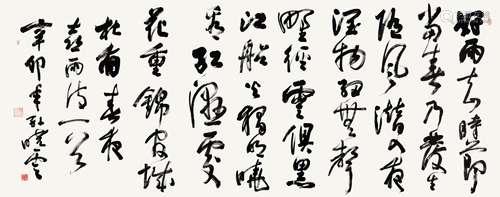 好雨知時節
當春乃發生
随風潛入夜
潤物細無聲
野徑雲俱黑
江船火獨明曉
看紅濕處
花重錦官城
杜甫春夜
喜雨诗一首
辛卯年曉雲